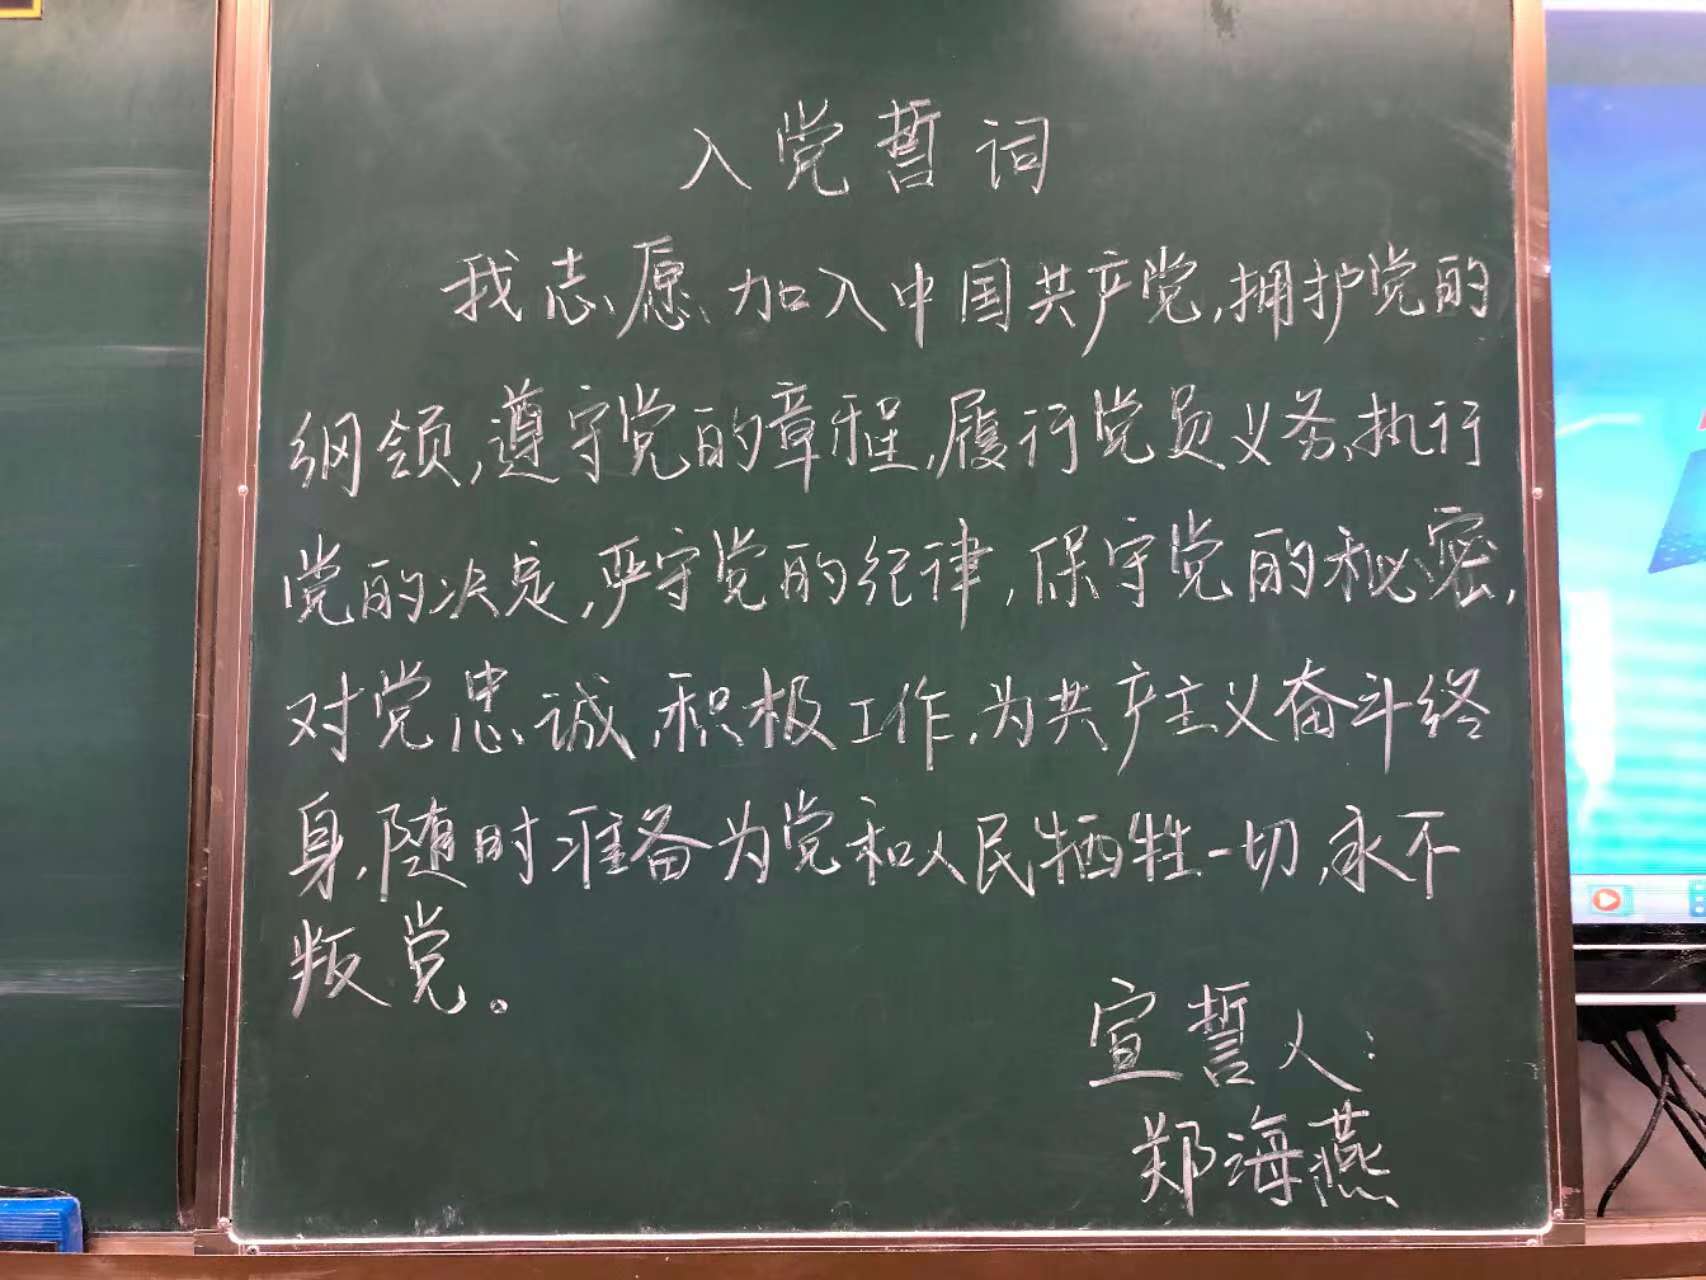 入党誓词
我志愿加入中国共产党,拥护党的
纲领,遵守党的章程,履行党员义务,执行
党的决定,严守党的纪律,保守党的秘密,
对党忠诚,积极工作,为共产主义奋斗终
身,随时准备为党和人民牺牲一切,永不
叛党。
宣誓人:
郑海燕